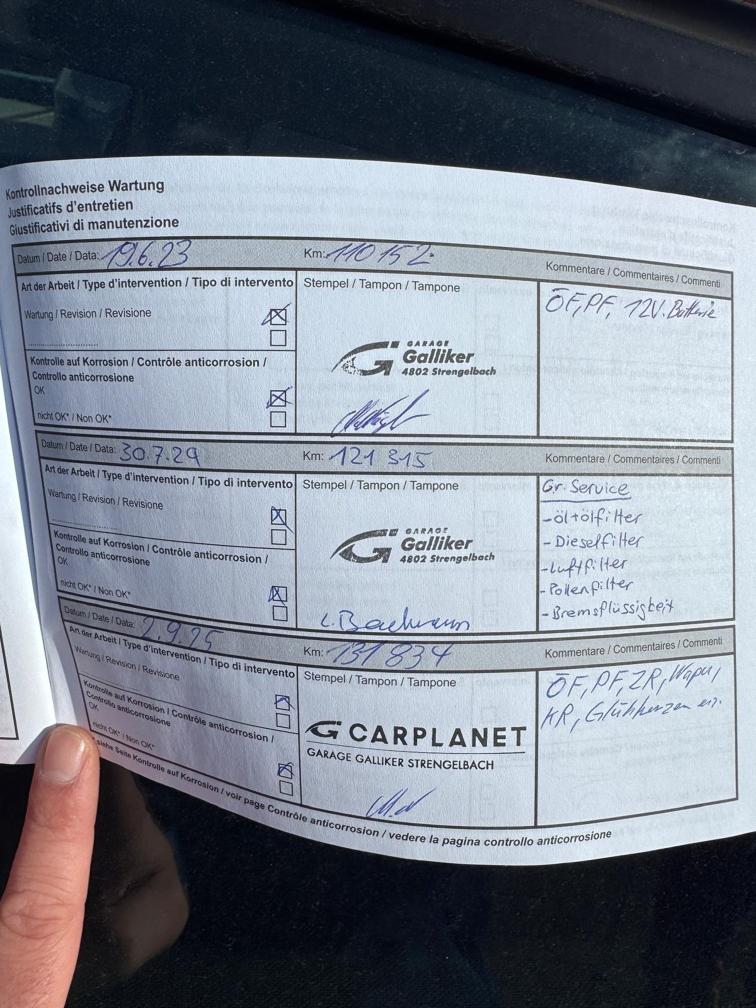 Kontrollnachweise Wartung
Justificatifs d'entretien
Giustificativi di manutenzione
Datum / Date / Data: 19.6.23 Km: 110 152
Kommentare / Commentaires / Commenti
Art der Arbeit / Type d'intervention / Tipo di intervento
Stempel / Tampon / Tampone
ÖF, PF, 12V. Batterie
Wartung / Revision / Revisione
GARAGE
Galliker
4802 Strengelbach
Kontrolle auf Korrosion / Contrôle anticorrosion /
Controllo anticorrosione
OK
nicht OK* / Non OK*
Datum / Date / Data: 30.7.24 Km: 121 315
Kommentare / Commentaires / Commenti
Art der Arbeit / Type d'intervention / Tipo di intervento
Stempel / Tampon / Tampone
Gr. Service
- Öl+ölfilter
- Dieselfilter
- Luftfilter
- Pollenfilter
- Bremsflüssigkeit
Wartung / Revision / Revisione
GARAGE
Galliker
4802 Strengelbach
Kontrolle auf Korrosion / Contrôle anticorrosion /
Controllo anticorrosione
OK
nicht OK* / Non OK*
L. Bachmann
Datum / Date / Data: 2.9.25 Km: 131 834
Kommentare / Commentaires / Commenti
Art der Arbeit / Type d'intervention / Tipo di intervento
Stempel / Tampon / Tampone
ÖF, PF, ZR, Wapu,
KR, Glühkerzen ern.
Wartung / Revision / Revisione
CARPLANET
GARAGE GALLIKER STRENGELBACH
Kontrolle auf Korrosion / Contrôle anticorrosion /
Controllo anticorrosione
OK
nicht OK* / Non OK*
*siehe Seite Kontrolle auf Korrosion / voir page Contrôle anticorrosion / vedere la pagina controllo anticorrosione